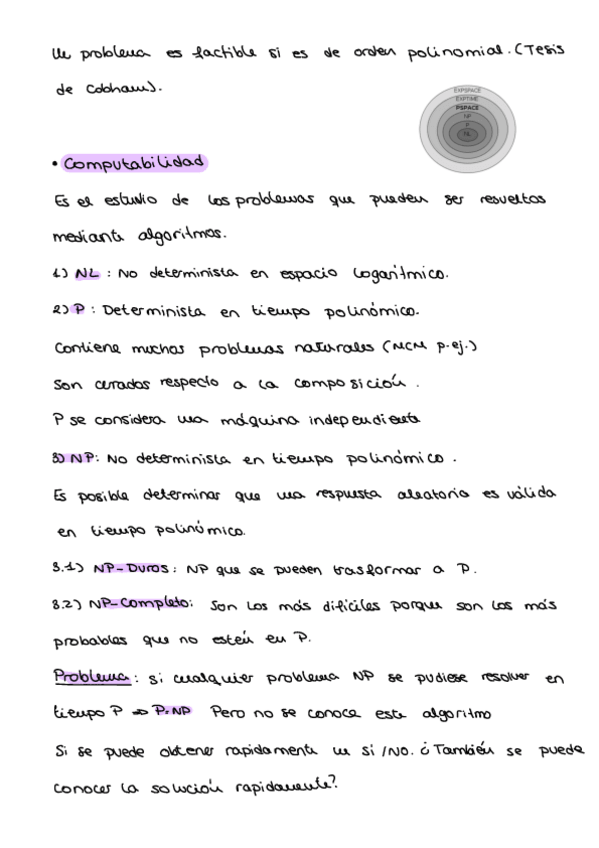 Un problema es factible si es de orden polinomial. (Tesis
de Cobham).
EXPSPACE
EXPTIME
PSPACE
NP
P
NL
• Computabilidad
Es el estudio de los problemas que pueden ser resueltos
mediante algoritmos.
1) NL : No determinista en espacio logarítmico.
2) P : Determinista en tiempo polinómico.
Contiene muchos problemas naturales (MCM p.ej.)
Son cerados respecto a la composición .
P se considera una máquina independiente
3) NP: No determinista en tiempo polinómico .
Es posible determinar que una respuesta aleatoria es válida
en tiempo polinómico.
3.1) NP-Duros: NP que se pueden trasformar a P.
3.2) NP-Completo: Son los más difíciles porque son los más
probables que no estén en P.
Problema : si cualquier problema NP se pudiese resolver en
tiempo P => P=NP Pero no se conoce este algoritmo
Si se puede obtener rapidamente un si /NO. ¿También se puede
conocer la solución rapidamente?